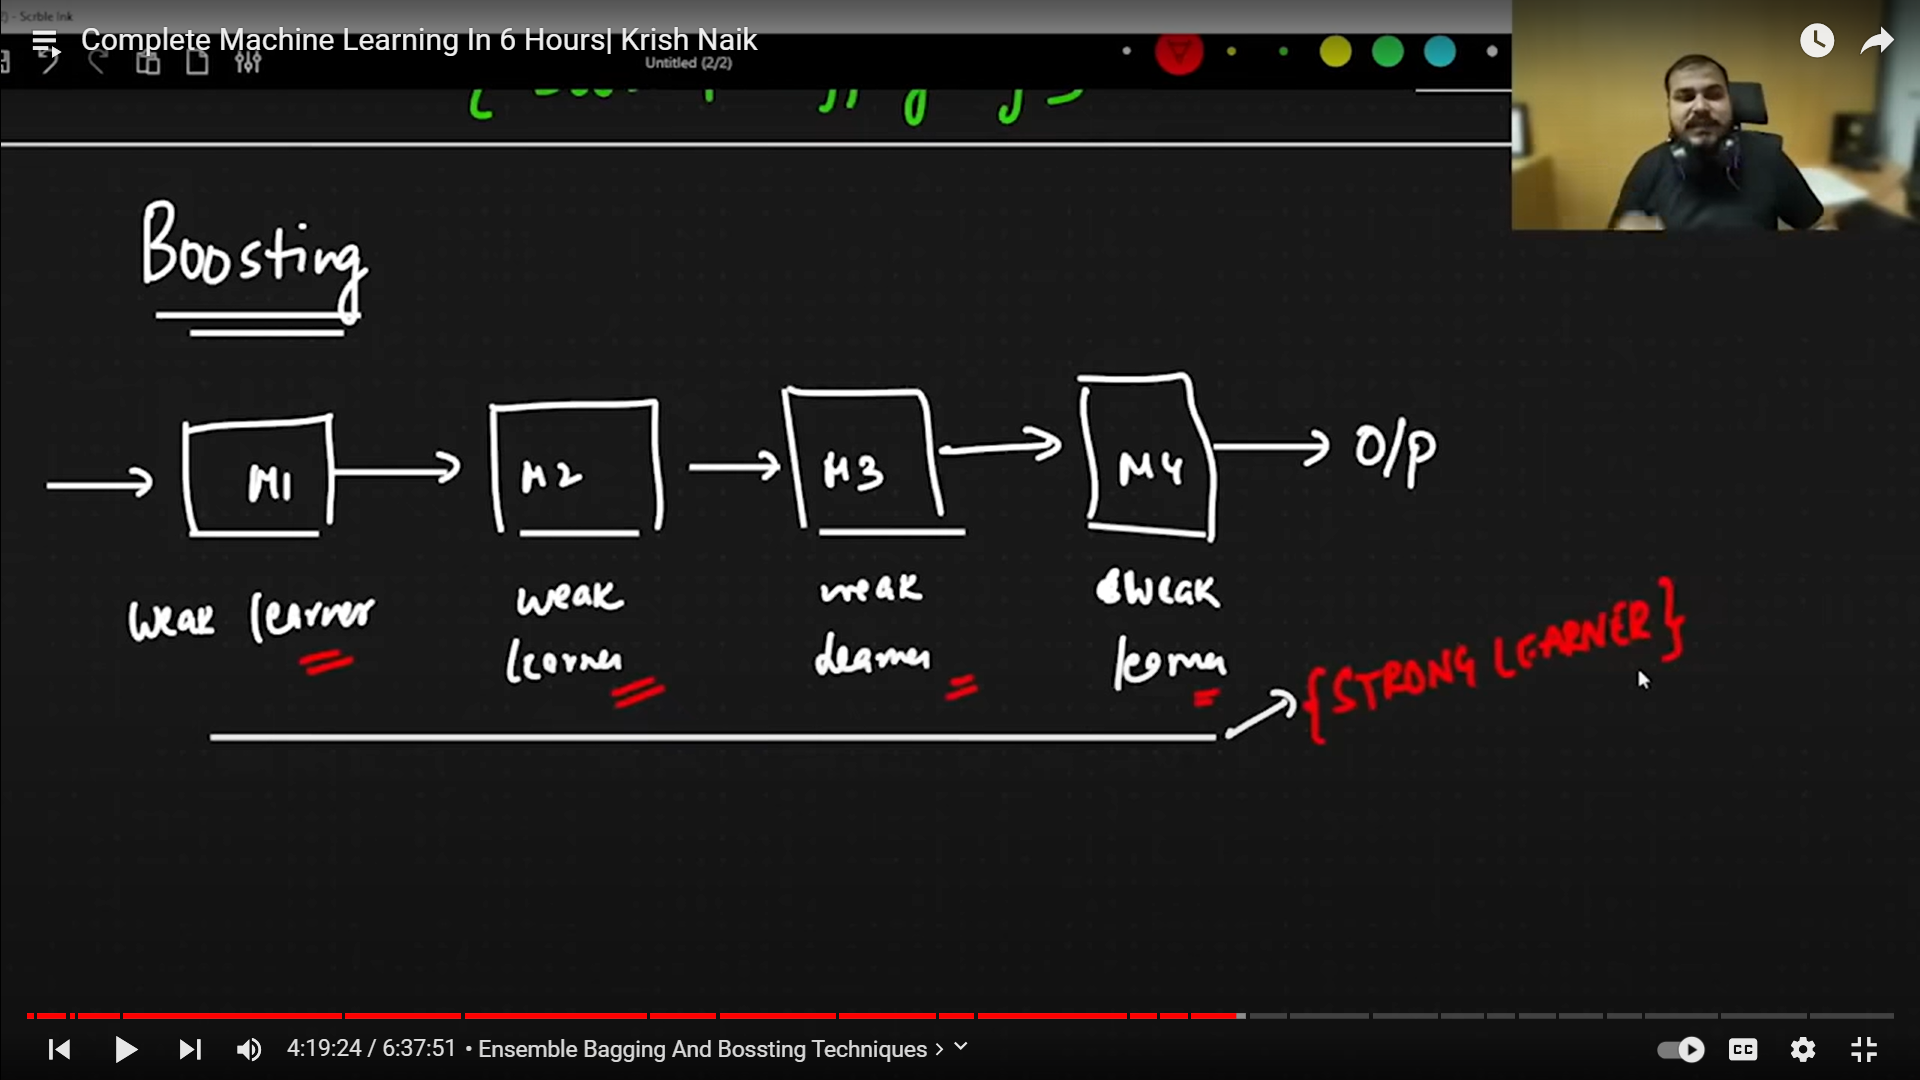 - Scrble Ink
Complete Machine Learning In 6 Hours| Krish Naik
Untitled (2/2)
Boosting
M1
M2
M3
M4
O/P
weak learner
weak
learner
weak
learner
weak
learner
{STRONG LEARNER}
4:19:24 / 6:37:51 • Ensemble Bagging And Bossting Techniques ›
CC